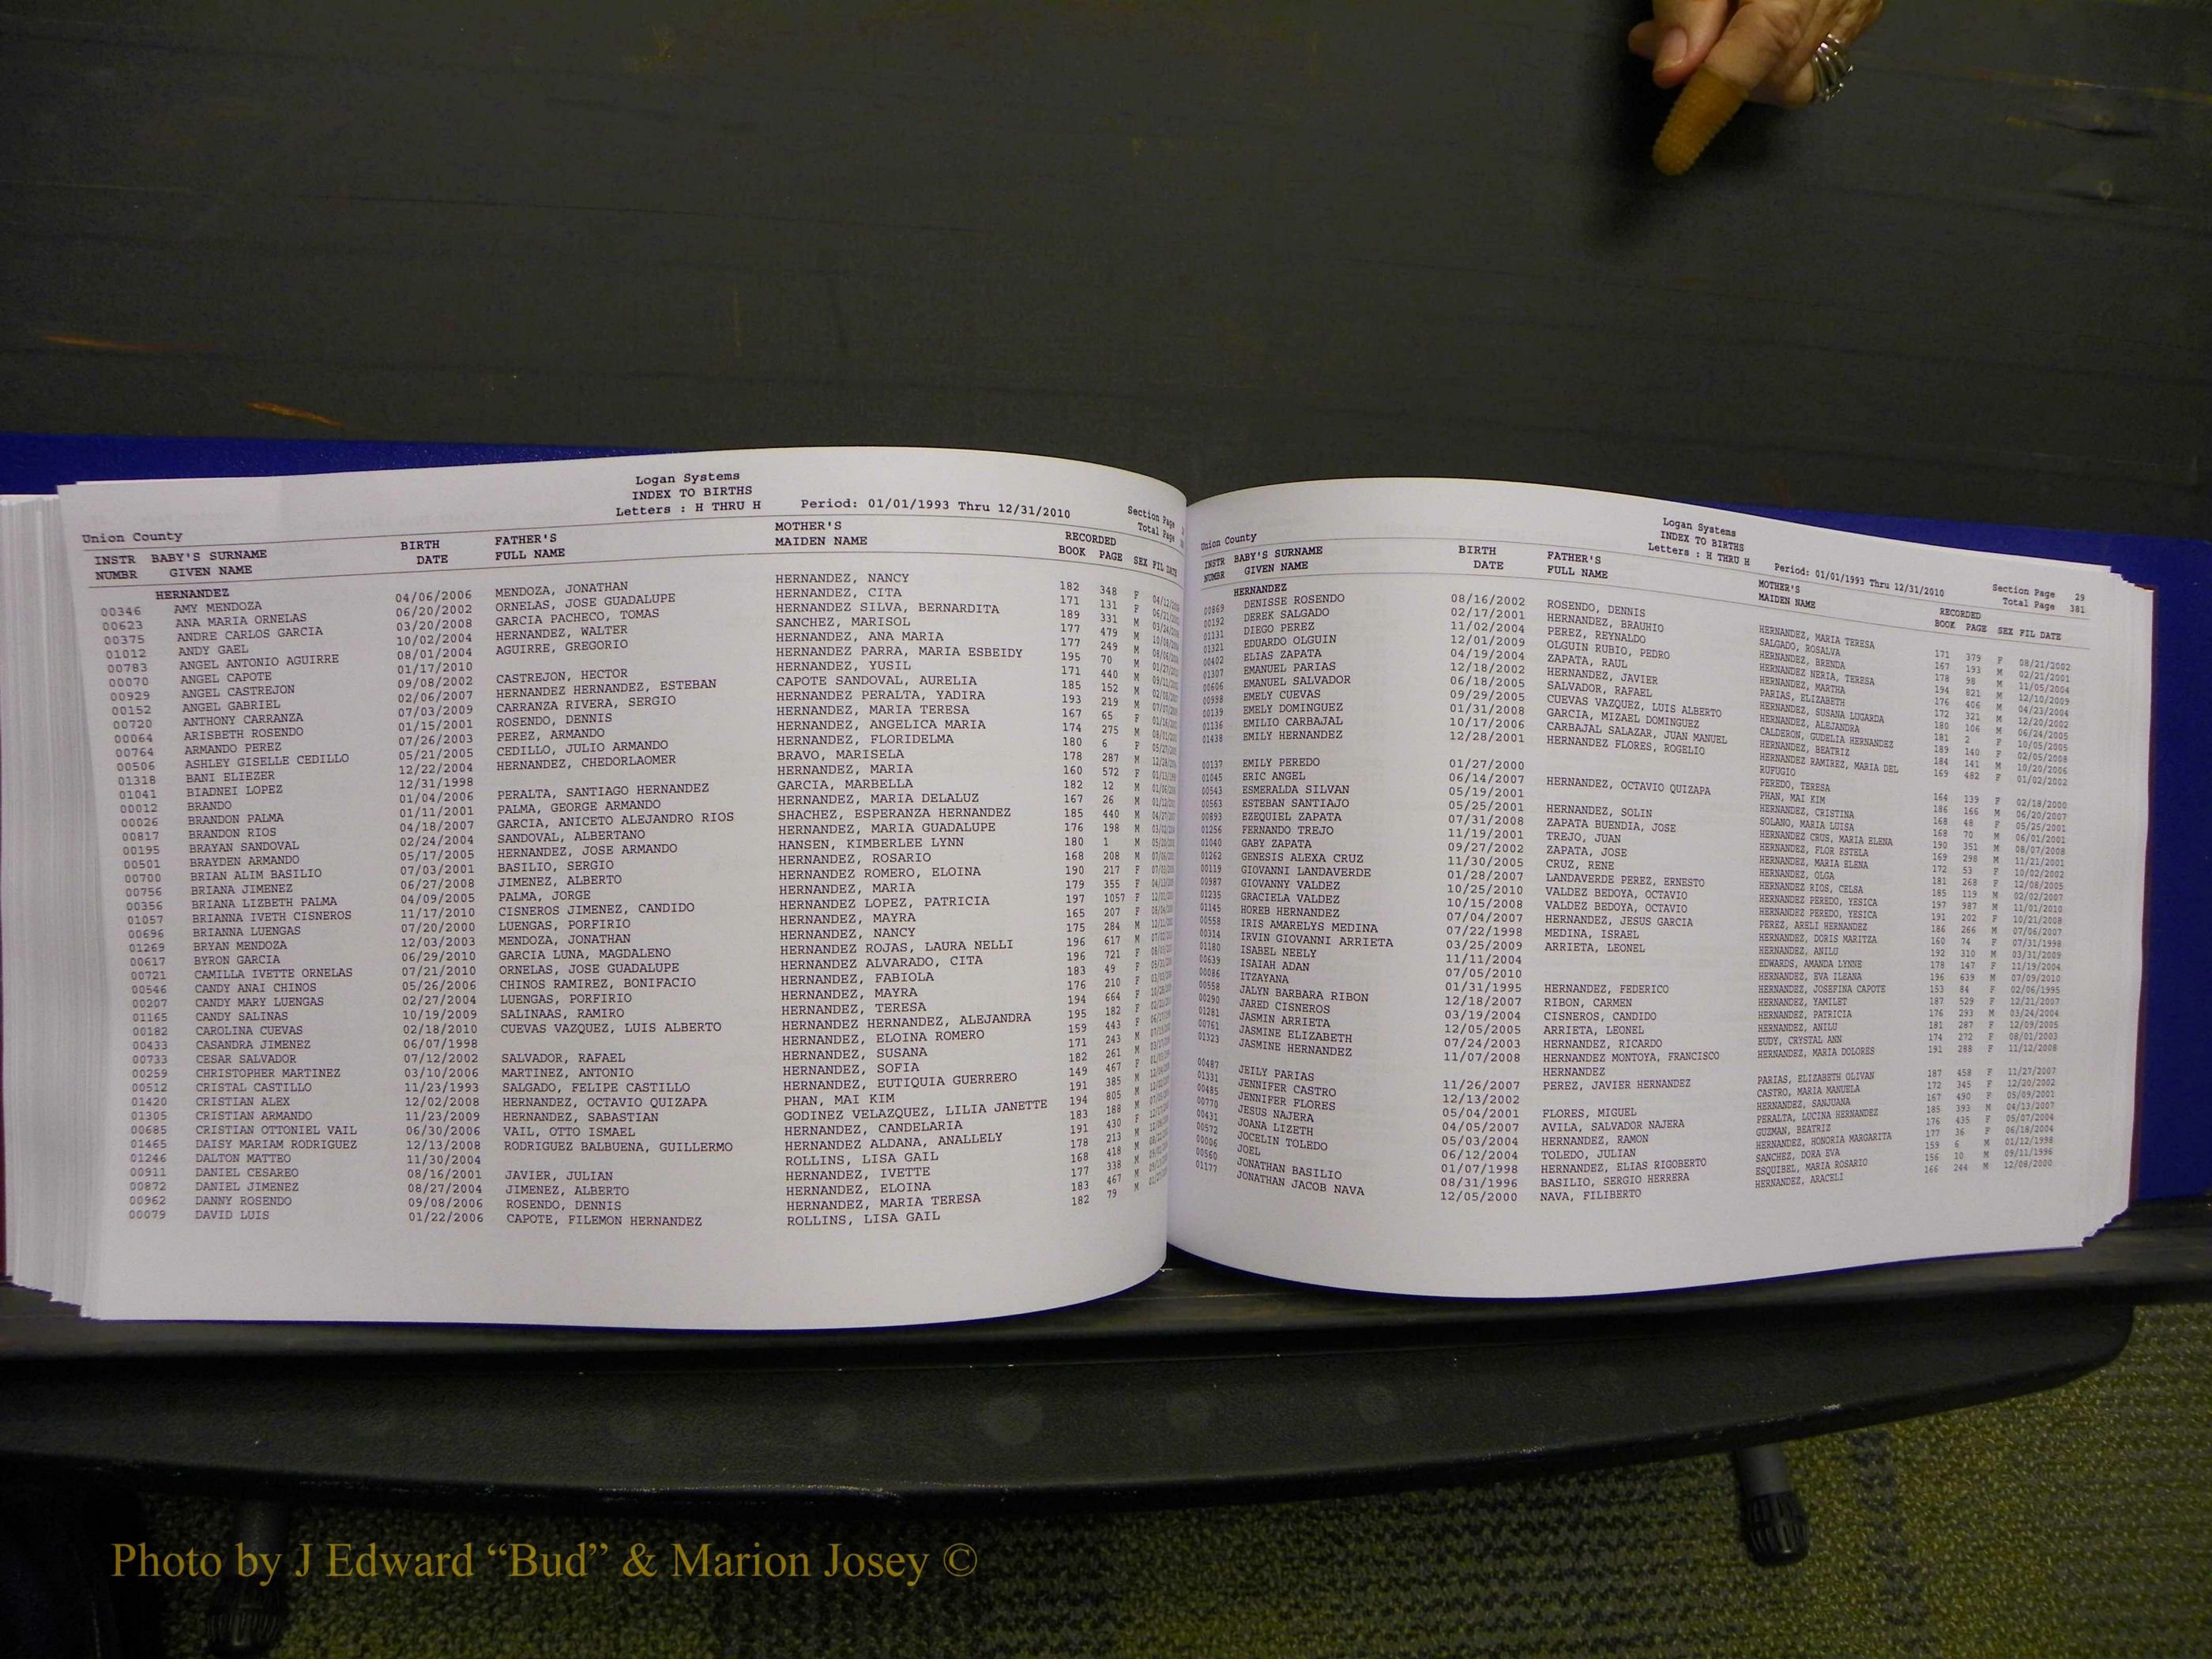 Logan Systems
INDEX TO BIRTHS
Letters : H THRU H Period: 01/01/1993 Thru 12/31/2010
Section Page
Total Page
Union County
INSTR BABY'S SURNAME BIRTH FATHER'S MOTHER'S RECORDED
NUMBR GIVEN NAME DATE FULL NAME MAIDEN NAME BOOK PAGE SEX FIL DATE
HERNANDEZ
00346 AMY MENDOZA 04/06/2006 MENDOZA, JONATHAN HERNANDEZ, NANCY 182 348 F
00623 ANA MARIA ORNELAS 06/20/2002 ORNELAS, JOSE GUADALUPE HERNANDEZ, CITA 171 131 F
00375 ANDRE CARLOS GARCIA 03/20/2008 GARCIA PACHECO, TOMAS HERNANDEZ SILVA, BERNARDITA 189 331 M
01012 ANDY GAEL 10/02/2004 HERNANDEZ, WALTER SANCHEZ, MARISOL 177 479 M
00783 ANGEL ANTONIO AGUIRRE 08/01/2004 AGUIRRE, GREGORIO HERNANDEZ, ANA MARIA 177 249 M
00070 ANGEL CAPOTE 01/17/2010 HERNANDEZ PARRA, MARIA ESBEIDY 195 70 M
00929 ANGEL CASTREJON 09/08/2002 CASTREJON, HECTOR HERNANDEZ, YUSIL 171 440 M
00152 ANGEL GABRIEL 02/06/2007 HERNANDEZ HERNANDEZ, ESTEBAN CAPOTE SANDOVAL, AURELIA 185 152 M
00720 ANTHONY CARRANZA 07/03/2009 CARRANZA RIVERA, SERGIO HERNANDEZ PERALTA, YADIRA 193 219 M
00064 ARISBETH ROSENDO 01/15/2001 ROSENDO, DENNIS HERNANDEZ, MARIA TERESA 167 65 F
00764 ARMANDO PEREZ 07/26/2003 PEREZ, ARMANDO HERNANDEZ, ANGELICA MARIA 174 275 M
00506 ASHLEY GISELLE CEDILLO 05/21/2005 CEDILLO, JULIO ARMANDO HERNANDEZ, FLORIDELMA 180 6 F
01318 BANI ELIEZER 12/22/2004 HERNANDEZ, CHEDORLAOMER BRAVO, MARISELA 178 287 M
01041 BIADNEI LOPEZ 12/31/1998 HERNANDEZ, MARIA 160 572 F
00012 BRANDO 01/04/2006 PERALTA, SANTIAGO HERNANDEZ GARCIA, MARBELLA 182 12 M
00026 BRANDON PALMA 01/11/2001 PALMA, GEORGE ARMANDO HERNANDEZ, MARIA DELALUZ 167 26 M
00817 BRANDON RIOS 04/18/2007 GARCIA, ANICETO ALEJANDRO RIOS SHACHEZ, ESPERANZA HERNANDEZ 185 440 M
00195 BRAYAN SANDOVAL 02/24/2004 SANDOVAL, ALBERTANO HERNANDEZ, MARIA GUADALUPE 176 198 M
00501 BRAYDEN ARMANDO 05/17/2005 HERNANDEZ, JOSE ARMANDO HANSEN, KIMBERLEE LYNN 180 1 M
00700 BRIAN ALIM BASILIO 07/03/2001 BASILIO, SERGIO HERNANDEZ, ROSARIO 168 208 M
00756 BRIANA JIMENEZ 06/27/2008 JIMENEZ, ALBERTO HERNANDEZ ROMERO, ELOINA 190 217 F
00356 BRIANA LIZBETH PALMA 04/09/2005 PALMA, JORGE HERNANDEZ, MARIA 179 355 F
01057 BRIANNA IVETH CISNEROS 11/17/2010 CISNEROS JIMENEZ, CANDIDO HERNANDEZ LOPEZ, PATRICIA 197 1057 F
00696 BRIANNA LUENGAS 07/20/2000 LUENGAS, PORFIRIO HERNANDEZ, MAYRA 165 207 F
01269 BRYAN MENDOZA 12/03/2003 MENDOZA, JONATHAN HERNANDEZ, NANCY 175 284 M
00617 BYRON GARCIA 06/29/2010 GARCIA LUNA, MAGDALENO HERNANDEZ ROJAS, LAURA NELLI 196 617 M
00721 CAMILLA IVETTE ORNELAS 07/21/2010 ORNELAS, JOSE GUADALUPE HERNANDEZ ALVARADO, CITA 196 721 F
00546 CANDY ANAI CHINOS 05/26/2006 CHINOS RAMIREZ, BONIFACIO HERNANDEZ, FABIOLA 183 49 F
00207 CANDY MARY LUENGAS 02/27/2004 LUENGAS, PORFIRIO HERNANDEZ, MAYRA 176 210 F
01165 CANDY SALINAS 10/19/2009 SALINAAS, RAMIRO HERNANDEZ, TERESA 194 664 F
00182 CAROLINA CUEVAS 02/18/2010 CUEVAS VAZQUEZ, LUIS ALBERTO HERNANDEZ HERNANDEZ, ALEJANDRA 195 182 F
00433 CASANDRA JIMENEZ 06/07/1998 HERNANDEZ, ELOINA ROMERO 159 443 F
00733 CESAR SALVADOR 07/12/2002 SALVADOR, RAFAEL HERNANDEZ, SUSANA 171 243 M
00259 CHRISTOPHER MARTINEZ 03/10/2006 MARTINEZ, ANTONIO HERNANDEZ, SOFIA 182 261 M
00512 CRISTAL CASTILLO 11/23/1993 SALGADO, FELIPE CASTILLO HERNANDEZ, EUTIQUIA GUERRERO 149 467 F
01420 CRISTIAN ALEX 12/02/2008 HERNANDEZ, OCTAVIO QUIZAPA PHAN, MAI KIM 191 385 M
01305 CRISTIAN ARMANDO 11/23/2009 HERNANDEZ, SABASTIAN GODINEZ VELAZQUEZ, LILIA JANETTE 194 805 M
00685 CRISTIAN OTTONIEL VAIL 06/30/2006 VAIL, OTTO ISMAEL HERNANDEZ, CANDELARIA 183 188 M
01465 DAISY MARIAM RODRIGUEZ 12/13/2008 RODRIGUEZ BALBUENA, GUILLERMO HERNANDEZ ALDANA, ANALLELY 191 430 F
01246 DALTON MATTEO 11/30/2004 ROLLINS, LISA GAIL 178 213 M
00911 DANIEL CESAREO 08/16/2001 JAVIER, JULIAN HERNANDEZ, IVETTE 168 418 M
00872 DANIEL JIMENEZ 08/27/2004 JIMENEZ, ALBERTO HERNANDEZ, ELOINA 177 338 M
00962 DANNY ROSENDO 09/08/2006 ROSENDO, DENNIS HERNANDEZ, MARIA TERESA 183 467 M
00079 DAVID LUIS 01/22/2006 CAPOTE, FILEMON HERNANDEZ ROLLINS, LISA GAIL 182 79 M
Logan Systems
INDEX TO BIRTHS
Letters : H THRU H Period: 01/01/1993 Thru 12/31/2010
Section Page 29
Total Page 381
Union County
INSTR BABY'S SURNAME BIRTH FATHER'S MOTHER'S RECORDED
NUMBR GIVEN NAME DATE FULL NAME MAIDEN NAME BOOK PAGE SEX FIL DATE
HERNANDEZ
00869 DENISSE ROSENDO 08/16/2002 ROSENDO, DENNIS HERNANDEZ, MARIA TERESA 171 379 F 08/21/2002
00192 DEREK SALGADO 02/17/2001 HERNANDEZ, BRAUHIO SALGADO, ROSALVA 167 193 M 02/21/2001
01131 DIEGO PEREZ 11/02/2004 PEREZ, REYNALDO HERNANDEZ, BRENDA 178 98 M 11/05/2004
01321 EDUARDO OLGUIN 12/01/2009 OLGUIN RUBIO, PEDRO HERNANDEZ NERIA, TERESA 194 821 M 12/10/2009
00402 ELIAS ZAPATA 04/19/2004 ZAPATA, RAUL HERNANDEZ, MARTHA 176 406 M 04/23/2004
01307 EMANUEL PARIAS 12/18/2002 HERNANDEZ, JAVIER PARIAS, ELIZABETH 172 321 M 12/20/2002
00606 EMANUEL SALVADOR 06/18/2005 SALVADOR, RAFAEL HERNANDEZ, SUSANA LUGARDA 180 106 M 06/24/2005
00998 EMELY CUEVAS 09/29/2005 CUEVAS VAZQUEZ, LUIS ALBERTO HERNANDEZ, ALEJANDRA 181 2 F 10/05/2005
00139 EMELY DOMINGUEZ 01/31/2008 GARCIA, MIZAEL DOMINGUEZ CALDERON, GUDELIA HERNANDEZ 189 140 F 02/05/2008
01136 EMILIO CARBAJAL 10/17/2006 CARBAJAL SALAZAR, JUAN MANUEL HERNANDEZ, BEATRIZ 184 141 M 10/20/2006
01438 EMILY HERNANDEZ 12/28/2001 HERNANDEZ FLORES, ROGELIO HERNANDEZ RAMIREZ, MARIA DEL 169 482 F 01/02/2002
RUFUGIO
00137 EMILY PEREDO 01/27/2000 PEREDO, TERESA 164 139 F 02/18/2000
01045 ERIC ANGEL 06/14/2007 HERNANDEZ, OCTAVIO QUIZAPA PHAN, MAI KIM 186 166 M 06/20/2007
00543 ESMERALDA SILVAN 05/19/2001 HERNANDEZ, CRISTINA 168 48 F 05/25/2001
00563 ESTEBAN SANTIAJO 05/25/2001 HERNANDEZ, SOLIN SOLANO, MARIA LUISA 168 70 M 06/01/2001
00893 EZEQUIEL ZAPATA 07/31/2008 ZAPATA BUENDIA, JOSE HERNANDEZ CRUS, MARIA ELENA 190 351 M 08/07/2008
01256 FERNANDO TREJO 11/19/2001 TREJO, JUAN HERNANDEZ, FLOR ESTELA 169 298 M 11/21/2001
01040 GABY ZAPATA 09/27/2002 ZAPATA, JOSE HERNANDEZ, MARIA ELENA 172 53 F 10/02/2002
01262 GENESIS ALEXA CRUZ 11/30/2005 CRUZ, RENE HERNANDEZ, OLGA 181 268 F 12/08/2005
00119 GIOVANNI LANDAVERDE 01/28/2007 LANDAVERDE PEREZ, ERNESTO HERNANDEZ RIOS, CELSA 185 119 M 02/02/2007
00987 GIOVANNY VALDEZ 10/25/2010 VALDEZ BEDOYA, OCTAVIO HERNANDEZ PEREDO, YESICA 197 987 M 11/01/2010
01235 GRACIELA VALDEZ 10/15/2008 VALDEZ BEDOYA, OCTAVIO HERNANDEZ PEREDO, YESICA 191 202 F 10/21/2008
01145 HOREB HERNANDEZ 07/04/2007 HERNANDEZ, JESUS GARCIA PEREZ, ARELI HERNANDEZ 186 266 M 07/06/2007
00558 IRIS AMARELYS MEDINA 07/22/1998 MEDINA, ISRAEL HERNANDEZ, DORIS MARITZA 160 74 F 07/31/1998
00314 IRVIN GIOVANNI ARRIETA 03/25/2009 ARRIETA, LEONEL HERNANDEZ, ANILU 192 310 M 03/31/2009
01180 ISABEL NEELY 11/11/2004 EDWARDS, AMANDA LYNNE 178 147 F 11/19/2004
00639 ISAIAH ADAN 07/05/2010 HERNANDEZ, EVA ILEANA 196 639 M 07/09/2010
00086 ITZAYANA 01/31/1995 HERNANDEZ, FEDERICO HERNANDEZ, JOSEFINA CAPOTE 153 84 F 02/06/1995
00558 JALYN BARBARA RIBON 12/18/2007 RIBON, CARMEN HERNANDEZ, YAMILET 187 529 F 12/21/2007
00290 JARED CISNEROS 03/19/2004 CISNEROS, CANDIDO HERNANDEZ, PATRICIA 176 293 M 03/24/2004
01281 JASMIN ARRIETA 12/05/2005 ARRIETA, LEONEL HERNANDEZ, ANILU 181 287 F 12/09/2005
00761 JASMINE ELIZABETH 07/24/2003 HERNANDEZ, RICARDO EUDY, CRYSTAL ANN 174 272 F 08/01/2003
01323 JASMINE HERNANDEZ 11/07/2008 HERNANDEZ MONTOYA, FRANCISCO HERNANDEZ, MARIA DOLORES 191 288 F 11/12/2008
HERNANDEZ
00487 JEILY PARIAS 11/26/2007 PEREZ, JAVIER HERNANDEZ PARIAS, ELIZABETH OLIVAN 187 458 F 11/27/2007
01331 JENNIFER CASTRO 12/13/2002 CASTRO, MARIA MANUELA 172 345 F 12/20/2002
00485 JENNIFER FLORES 05/04/2001 FLORES, MIGUEL HERNANDEZ, SANJUANA 167 490 F 05/09/2001
00770 JESUS NAJERA 04/05/2007 AVILA, SALVADOR NAJERA PERALTA, LUCINA HERNANDEZ 185 393 M 04/13/2007
00431 JOANA LIZETH 05/03/2004 HERNANDEZ, RAMON GUZMAN, BEATRIZ 176 435 F 05/07/2004
00572 JOCELIN TOLEDO 06/12/2004 TOLEDO, JULIAN HERNANDEZ, HONORIA MARGARITA 177 36 F 06/18/2004
00006 JOEL 01/07/1998 HERNANDEZ, ELIAS RIGOBERTO SANCHEZ, DORA EVA 159 6 M 01/12/1998
00560 JONATHAN BASILIO 08/31/1996 BASILIO, SERGIO HERRERA ESQUIBEL, MARIA ROSARIO 156 10 M 09/11/1996
01177 JONATHAN JACOB NAVA 12/05/2000 NAVA, FILIBERTO HERNANDEZ, ARACELI 166 244 M 12/08/2000
Photo by J Edward “Bud” & Marion Josey ©